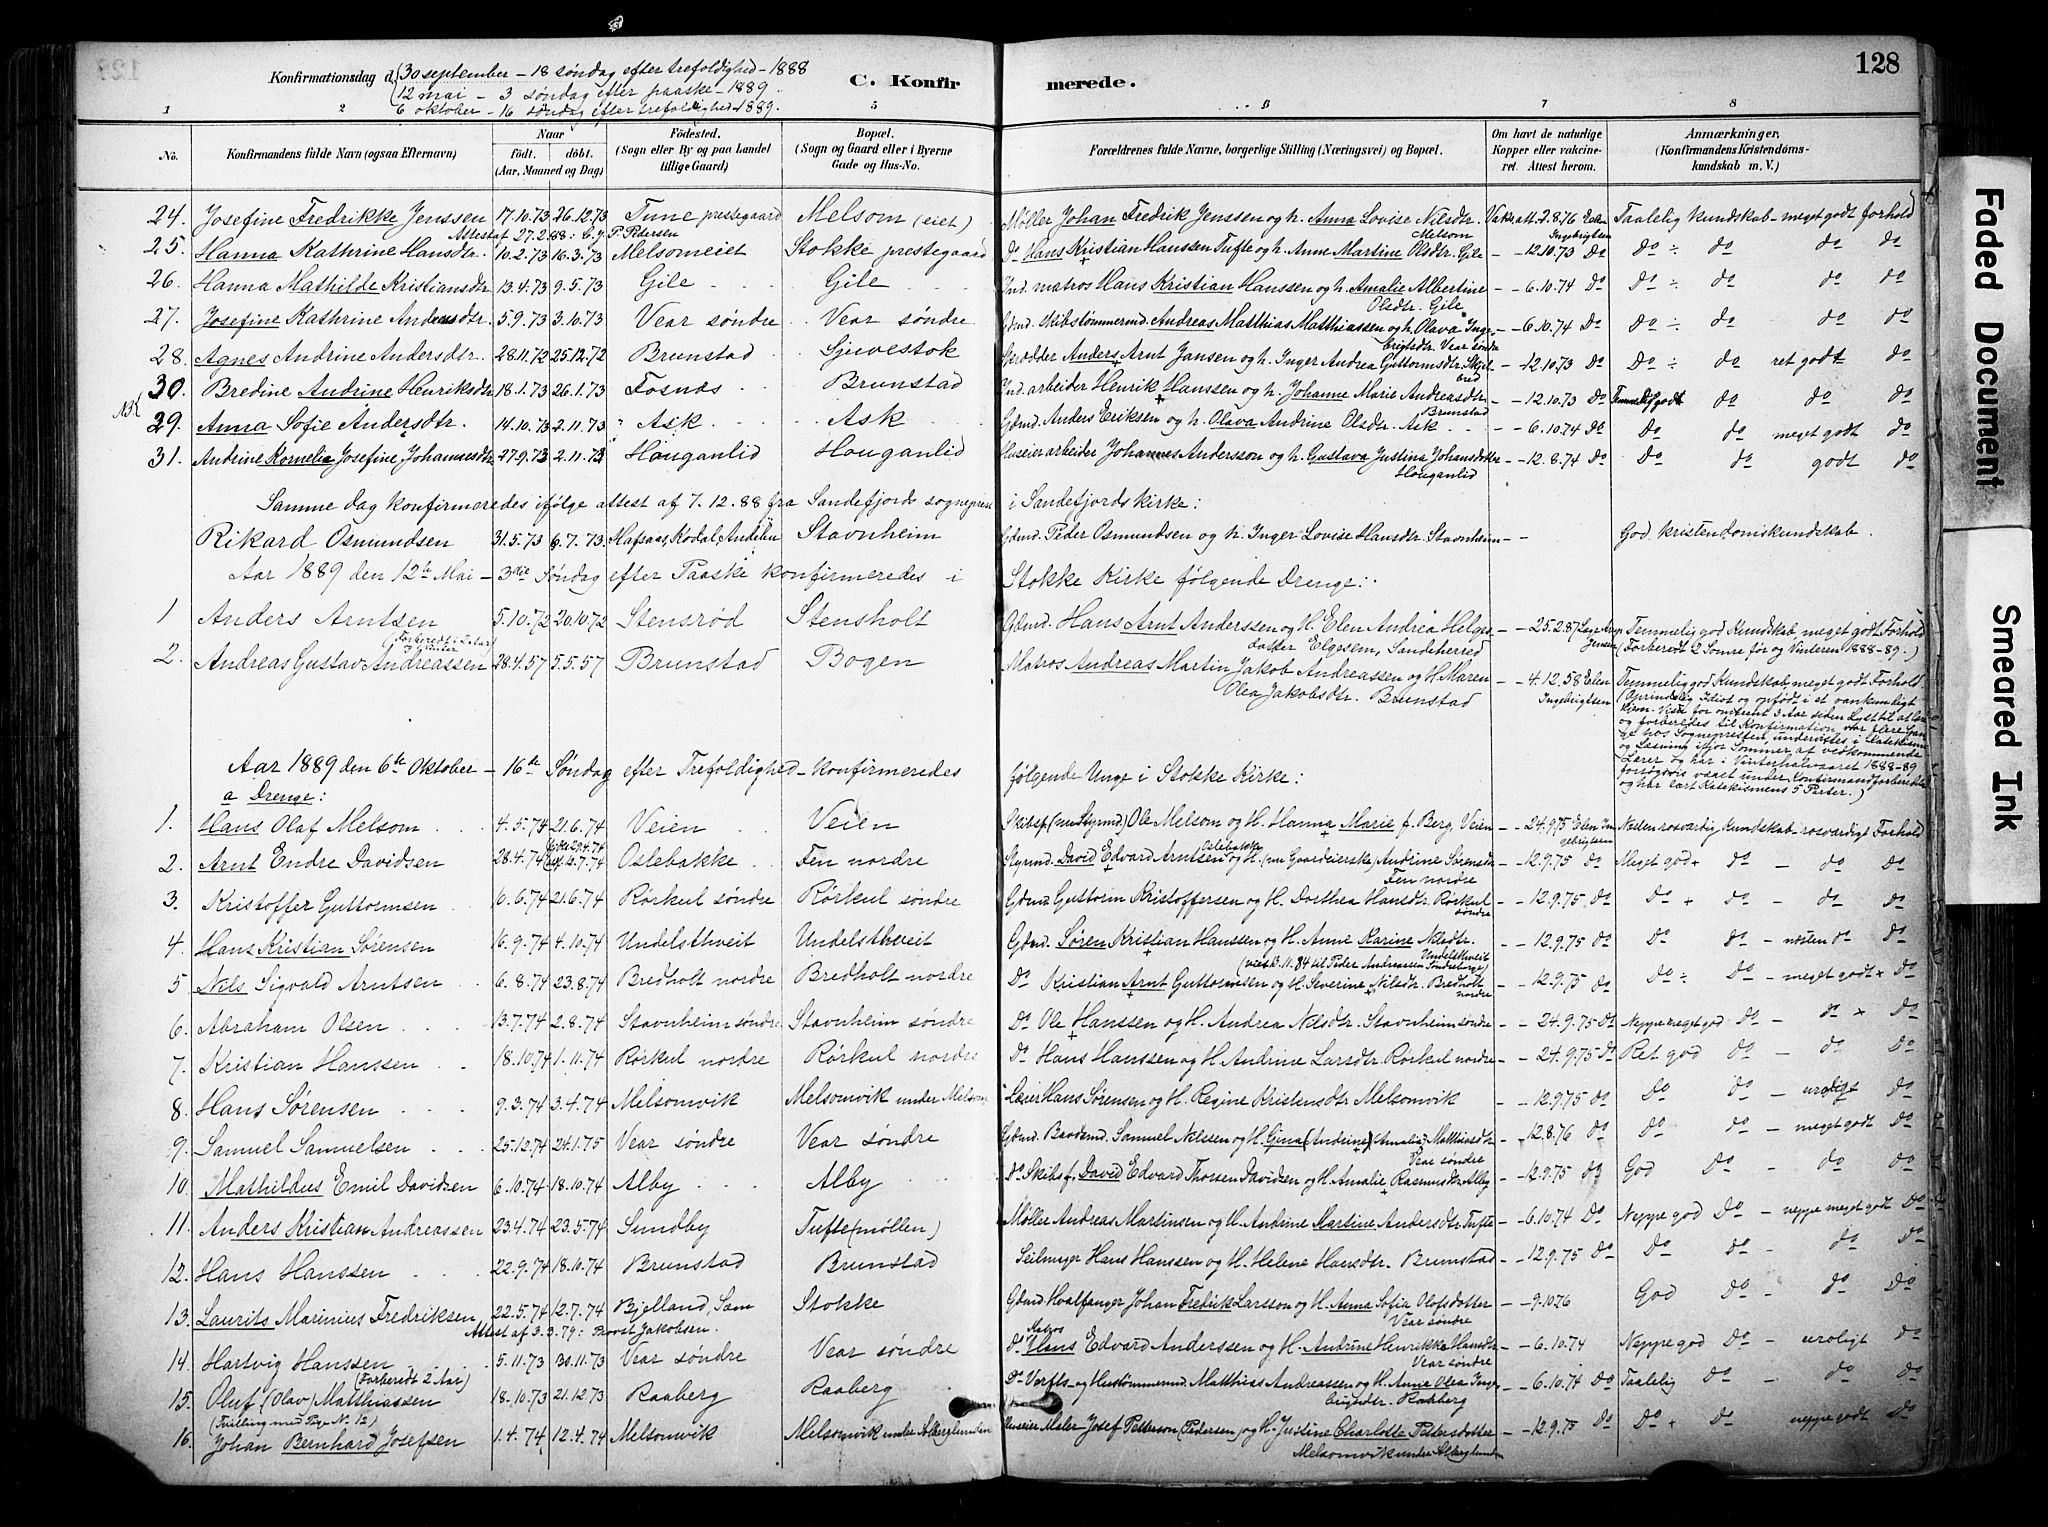 128
Konfirmationsdag d. 30 september - 18 søndag efter trefoldighed - 1888
12 mai - 3 søndag efter paaske - 1889.
6 oktober - 16 søndag efter trefoldighed 1889.
C. Konfirmerede.
1 2 5 6 7 8
No. Konfirmandens fulde Navn (ogsaa Efternavn) Naar født. døbt. (Aar, Maaned og Dag) Fødested. (Sogn eller By og paa Landet tillige Gaard) Bopæl. (Sogn og Gaard eller i Byerne Gade og Hus-No. Forældrenes fulde Navne, borgerlige Stilling (Næringsvei) og Bopæl. Om havt de naturlige Kopper eller vaccineret. Attest herom. Anmærkninger. (Konfirmandens Kristendomskundskab m. V.)
24. Josefine Fredrikke Jenssen 17.10.73 26.12.73 Tune prestegaard Melsom (eiet) Møller Johan Fredrik Jenssen og h. Anna Lovise Nilsdtr. Melsom Vak. att. 2.8.76 Taalelig kundskab - meget godt forhold
Attest af 27.2.88: P. Petersen
25. Hanna Kathrine Hansdtr. 10.2.73 16.3.73 Melsomeiet Stokke prestegaard Do Hans Kristian Hanssen Tufte og h. Anne Martine Olsdtr. Gile - - 12.10.73 Do Do ÷ do do do
26. Hanna Mathilde Kristiansdtr. 13.4.73 9.5.73 Gile Gile Ind. matros Hans Kristian Hanssen og h. Amalie Albertine Olsdtr. Gile - - 6.10.74 Do Do ÷ do do do
27. Josefine Kathrine Andreasdtr. 5.9.73 3.10.73 Vear søndre Vear søndre Gdmd. Skibstømmermd. Andreas Matthias Matthiassen og h. Olava Ingebrigtsdtr. Vear søndre - - 6.10.74 Do Do ÷ do do do
28. Agnes Andrine Andersdtr. 28.11.72 25.12.72 Brunstad Sjuvestok Skrædder Anders Arnt Jansen og h. Inger Andrea Guttormsdtr. - 12.10.73 Do Do ÷ do ret godt do
NB 30. Bredine Andrine Henriksdtr. 18.1.73 26.1.73 Fosnæs Brunstad Ind. arbeider Henrik Hanssen og h. Johanne Marie Andreasdtr. Brunstad - 12.10.73 Do do do do
29. Anna Sofie Andersdtr. 14.10.73 2.11.73 Ask Ask Gdmd. Anders Eriksen og h. Olava Andrine Olsdtr. Ask - 6.10.74 Do Do do meget godt do
31. Andrine Kornelia Josefine Johannesdtr. 27.9.73 2.11.73 Houganlid Houganlid Huseier arbeider Johannes Andersson og h. Gustava Justina Johansdotter Houganlid - - 12.8.74 Do Do do godt do
Samme dag konfirmeredes ifølge attest af 7.12.88 fra Sandefjords sogneprest i Sandefjords kirke:
Rikard Osmundsen 31.5.73 6.7.73 Hafsaas, Kodal, Andebu Stavnheim Gdmd. Peder Osmundsen og h. Inger Lovise Hansdtr. Stavnheim - - God kristendomskundskab.
Aar 1889 den 12te Mai - 3die Søndag efter Paaske konfirmeredes i Stokke Kirke følgende Drenge:
1 Anders Arntsen 5.10.72 20.10.72 Stensrød Stensholt Gdmd. Hans Arnt Anderssen og H. Elen Andrea Helgesdatter Elgesem, Sandeherred - 25.2.87 Temmelig god Kundskab meget godt Forhold
(Forberedt i 2 Aar) (Forberedt 2 Somre før og Vinteren 1888-89.)
2. Andreas Gustav Andreassen 28.4.57 5.5.57 Brunstad Bogen Matros Andreas Martin Jakob Andreassen og H. Maren Olea Jakobsdtr. Brunstad - 4.12.58 Elen Ingebrigtsen Temmelig god Kundskab, meget godt Forhold.
(Oprindelig Idiot og opfødt i et vankundigt Hjem. Viste for omtrent 3 Aar siden Lyst til at lære og forberedes til Konfirmation, var flere Gange hos Sognepresten, undervistes i Katekismus og Læsning ifjor Sommer af vedkommende Lærer og har i Vinterhalvaaret 1888-89 forsøgsvis vært under Konfirmandforberedelse og har lært Katekismens 5 Parter.)
Aar 1889 den 6te Oktober - 16de Søndag efter Trefoldighed - konfirmeredes følgende Unge i Stokke Kirke:
a Drenge:
1. Hans Olaf Melsom 4.5.74 21.6.74 Veien Veien Skibsf. (nu Styrmd.) Ole Melsom og H. Hanna Marie f. Berg, Veien - 24.9.75 Elen Ingebrigtsen Næsten rosværdig Kundskab - rosværdigt Forhold
2. Arnt Endre Davidsen 28.4.74 Oslebakke Fen nordre Styrmd. David Edvard Arntsen Oslebakke og H. (nu Gaardeierske) Andrine Sørensdtr. Fen nordre - 12.9.75 Do Meget god + do - do do
3. Kristoffer Guttormsen 6.6.74 21.6.74 Rørkul søndre Rørkul søndre Gdmd. Guttorm Kristoffersen og H. Dorthea Hansdtr. Rørkul søndre - 12.9.75 Do Do + do - do do
4. Hans Kristian Sørensen 16.9.74 4.10.74 Undelsthveit Undelsthveit Gdmd. Søren Kristian Hanssen og H. Anne Karine Nilsdtr. Undelsthveit - - 12.9.75 Do Do do - næsten do do
(viet 13.11.84 til Peder Andreassen)
5 Nils Sigvald Arntsen 6.8.74 23.8.74 Bredholt nordre Bredholt nordre Do Kristian Arnt Guttormsen og H. Severine Nilsdtr. Bredholt nordre - 12.9.75 Do Do ÷ Do - meget godt × do
6. Abraham Olsen 13.7.74 2.8.74 Stavnheim søndre Stavnheim søndre Do Ole Hanssen og H. Andrea Nilsdtr. Stavnheim søndre - 24.9.75 Do Neppe meget god Do - do × do
7. Kristian Hanssen 18.10.74 1.11.74 Rørkul nordre Rørkul nordre Do Hans Hanssen og H. Andrine Larsdtr. Rørkul nordre - - 24.9.75 Do Ret god do - do do
8. Hans Sørensen 9.3.74 3.4.74 Melsomvik Melsomvik under Melsom Hans Sørensen og H. Regine Kristensdtr. Melsomvik - - 12.9.75 Do Do do - uroligt do
9. Samuel Samuelsen 25.12.74 24.1.75 Vear søndre Vear søndre Gdmd. Baadsmd. Samuel Nilssen og H. Gina (Andrine) (Amalia) Matthiasdtr. Vear søndre - 12.8.76 Do Do Do - meget godt do
10. Mathildus Emil Davidsen 6.10.74 18.10.74 Alby Alby Do Skibsf. David Edvard Thorsen Davidsen og H. Amalie Rasmusdtr. Alby - 12.9.75 Do God Do - do do
11. Anders Kristian Andreassen 23.4.74 23.5.74 Sundby Tufte (møllen) Møller Andreas Martinsen og H. Andrine Martine Andersdtr. Tufte - 6.10.74 Do Neppe god Do - neppe meget godt do
12. Hans Hanssen 22.9.74 18.10.74 Brunstad Brunstad Seilmager Hans Hanssen og H. Helene Hansdtr. Brunstad - 12.9.75 Do Do Do - do do
13. Laurits Marinius Fredriksen 22.5.74 12.7.74 Bjelland, Sem Stokke Gdmd. Hvalfanger Johan Fredrik Larsson og H. Anna Sofia Olofsdotter Vear søndre - 9.10.76 God Do - do do
Attest af 3.3.79: Provst Jakobsen.
14 Hartvig Hanssen 5.11.73 30.11.73 Vear søndre Vear søndre Do Matros Hans Edvard Anderssen og H. Andrine Henrikke Hansdtr. Vear søndre - 6.10.74 Neppe god Do - uroligt do
(Forberedt 2 Aar)
15. Oluf (Olav) Matthiassen 18.10.73 21.12.73 Raaberg Raaberg Do Verfts- og Hustømmermd. Matthias Andreassen og H. Anne Olea Ingebrigtsdtr. Raaberg - 6.10.74 Do Taalelig do - do do
(Tvilling med Pige No. 12)
16. Johan Bernhard Josefsen 1.4.74 12.4.74 Melsomvik Melsomvik under Alberglunden Huseier Maler Josef Petterson (Pedersen) og H. Justine Charlotte Petersdotter Melsomvik under Alberglunden - 12.9.75 Do Do + do - neppe godt do
Faded Document
Smeared Ink